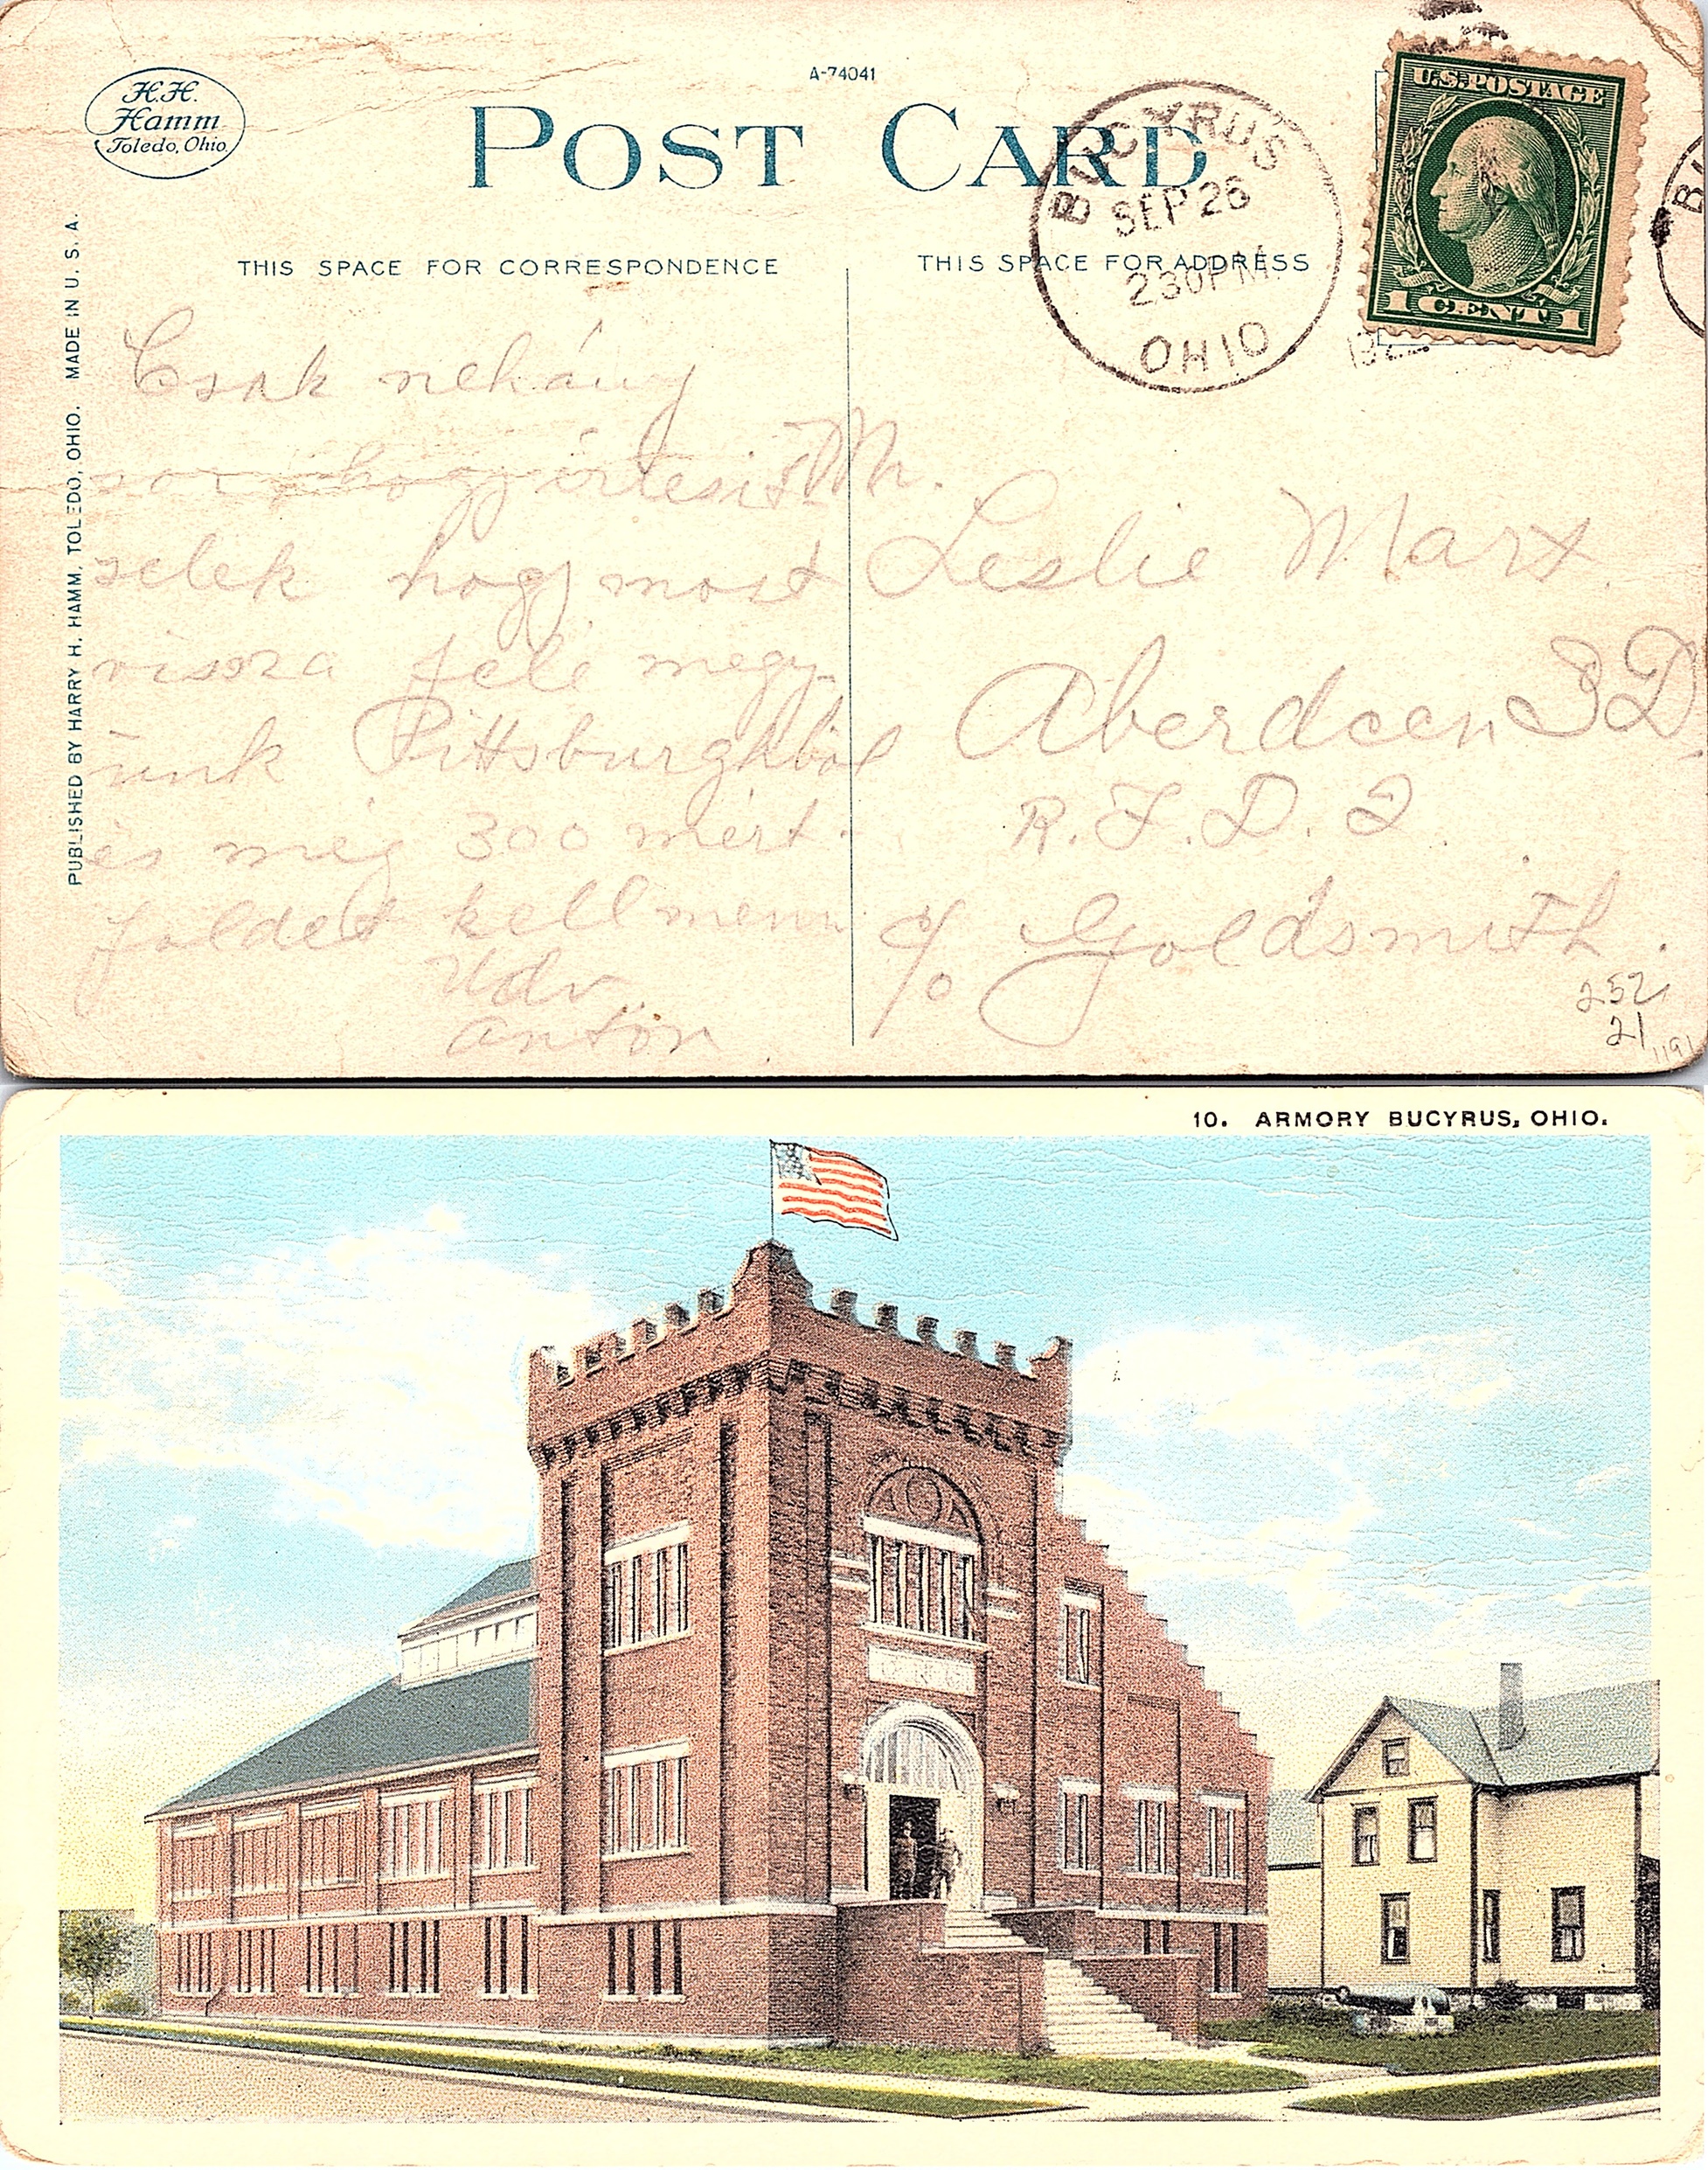 H.H.
Hamm
Toledo, Ohio.
A-74041
POST CARD
BUCYRUS
SEP 26
230 PM
OHIO
U.S. POSTAGE
1 CENT 1
THIS SPACE FOR CORRESPONDENCE
THIS SPACE FOR ADDRESS
PUBLISHED BY HARRY H. HAMM, TOLEDO, OHIO. MADE IN U. S. A.
Csak nehány
sor, hogy értesit
selek hogy most
vissza fele megy
ünk Pittsburghból
és még 300 mért
földet kell menni
Üdv
Antón
Mr.
Leslie Marx
Aberdeen S D.
R. F. D. 2
c/o Goldsmith.
252
21
1191
10. ARMORY BUCYRUS, OHIO.